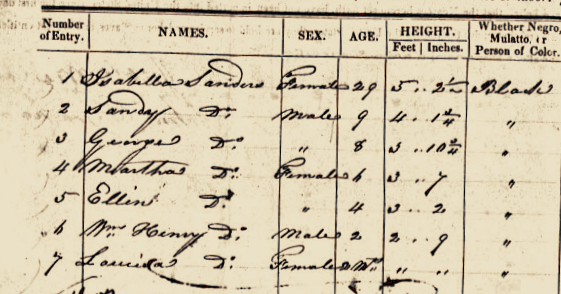 Number of Entry. NAMES. SEX. AGE. HEIGHT. Feet | Inches. Whether Negro, Mulatto, or Person of Color.
1 Isabella Sanders Female 29 5 .. 2½ Black
2 Sandy Do. Male 9 4 .. 1¾ "
3 George Do. " 8 3 .. 10¾ "
4 Martha Do. Female 6 3 .. 7 "
5 Ellin Do. " 4 3 .. 2 "
6 Wm. Henry Do. Male 2 2 .. 9 "
7 Louisa Do. Female " " "